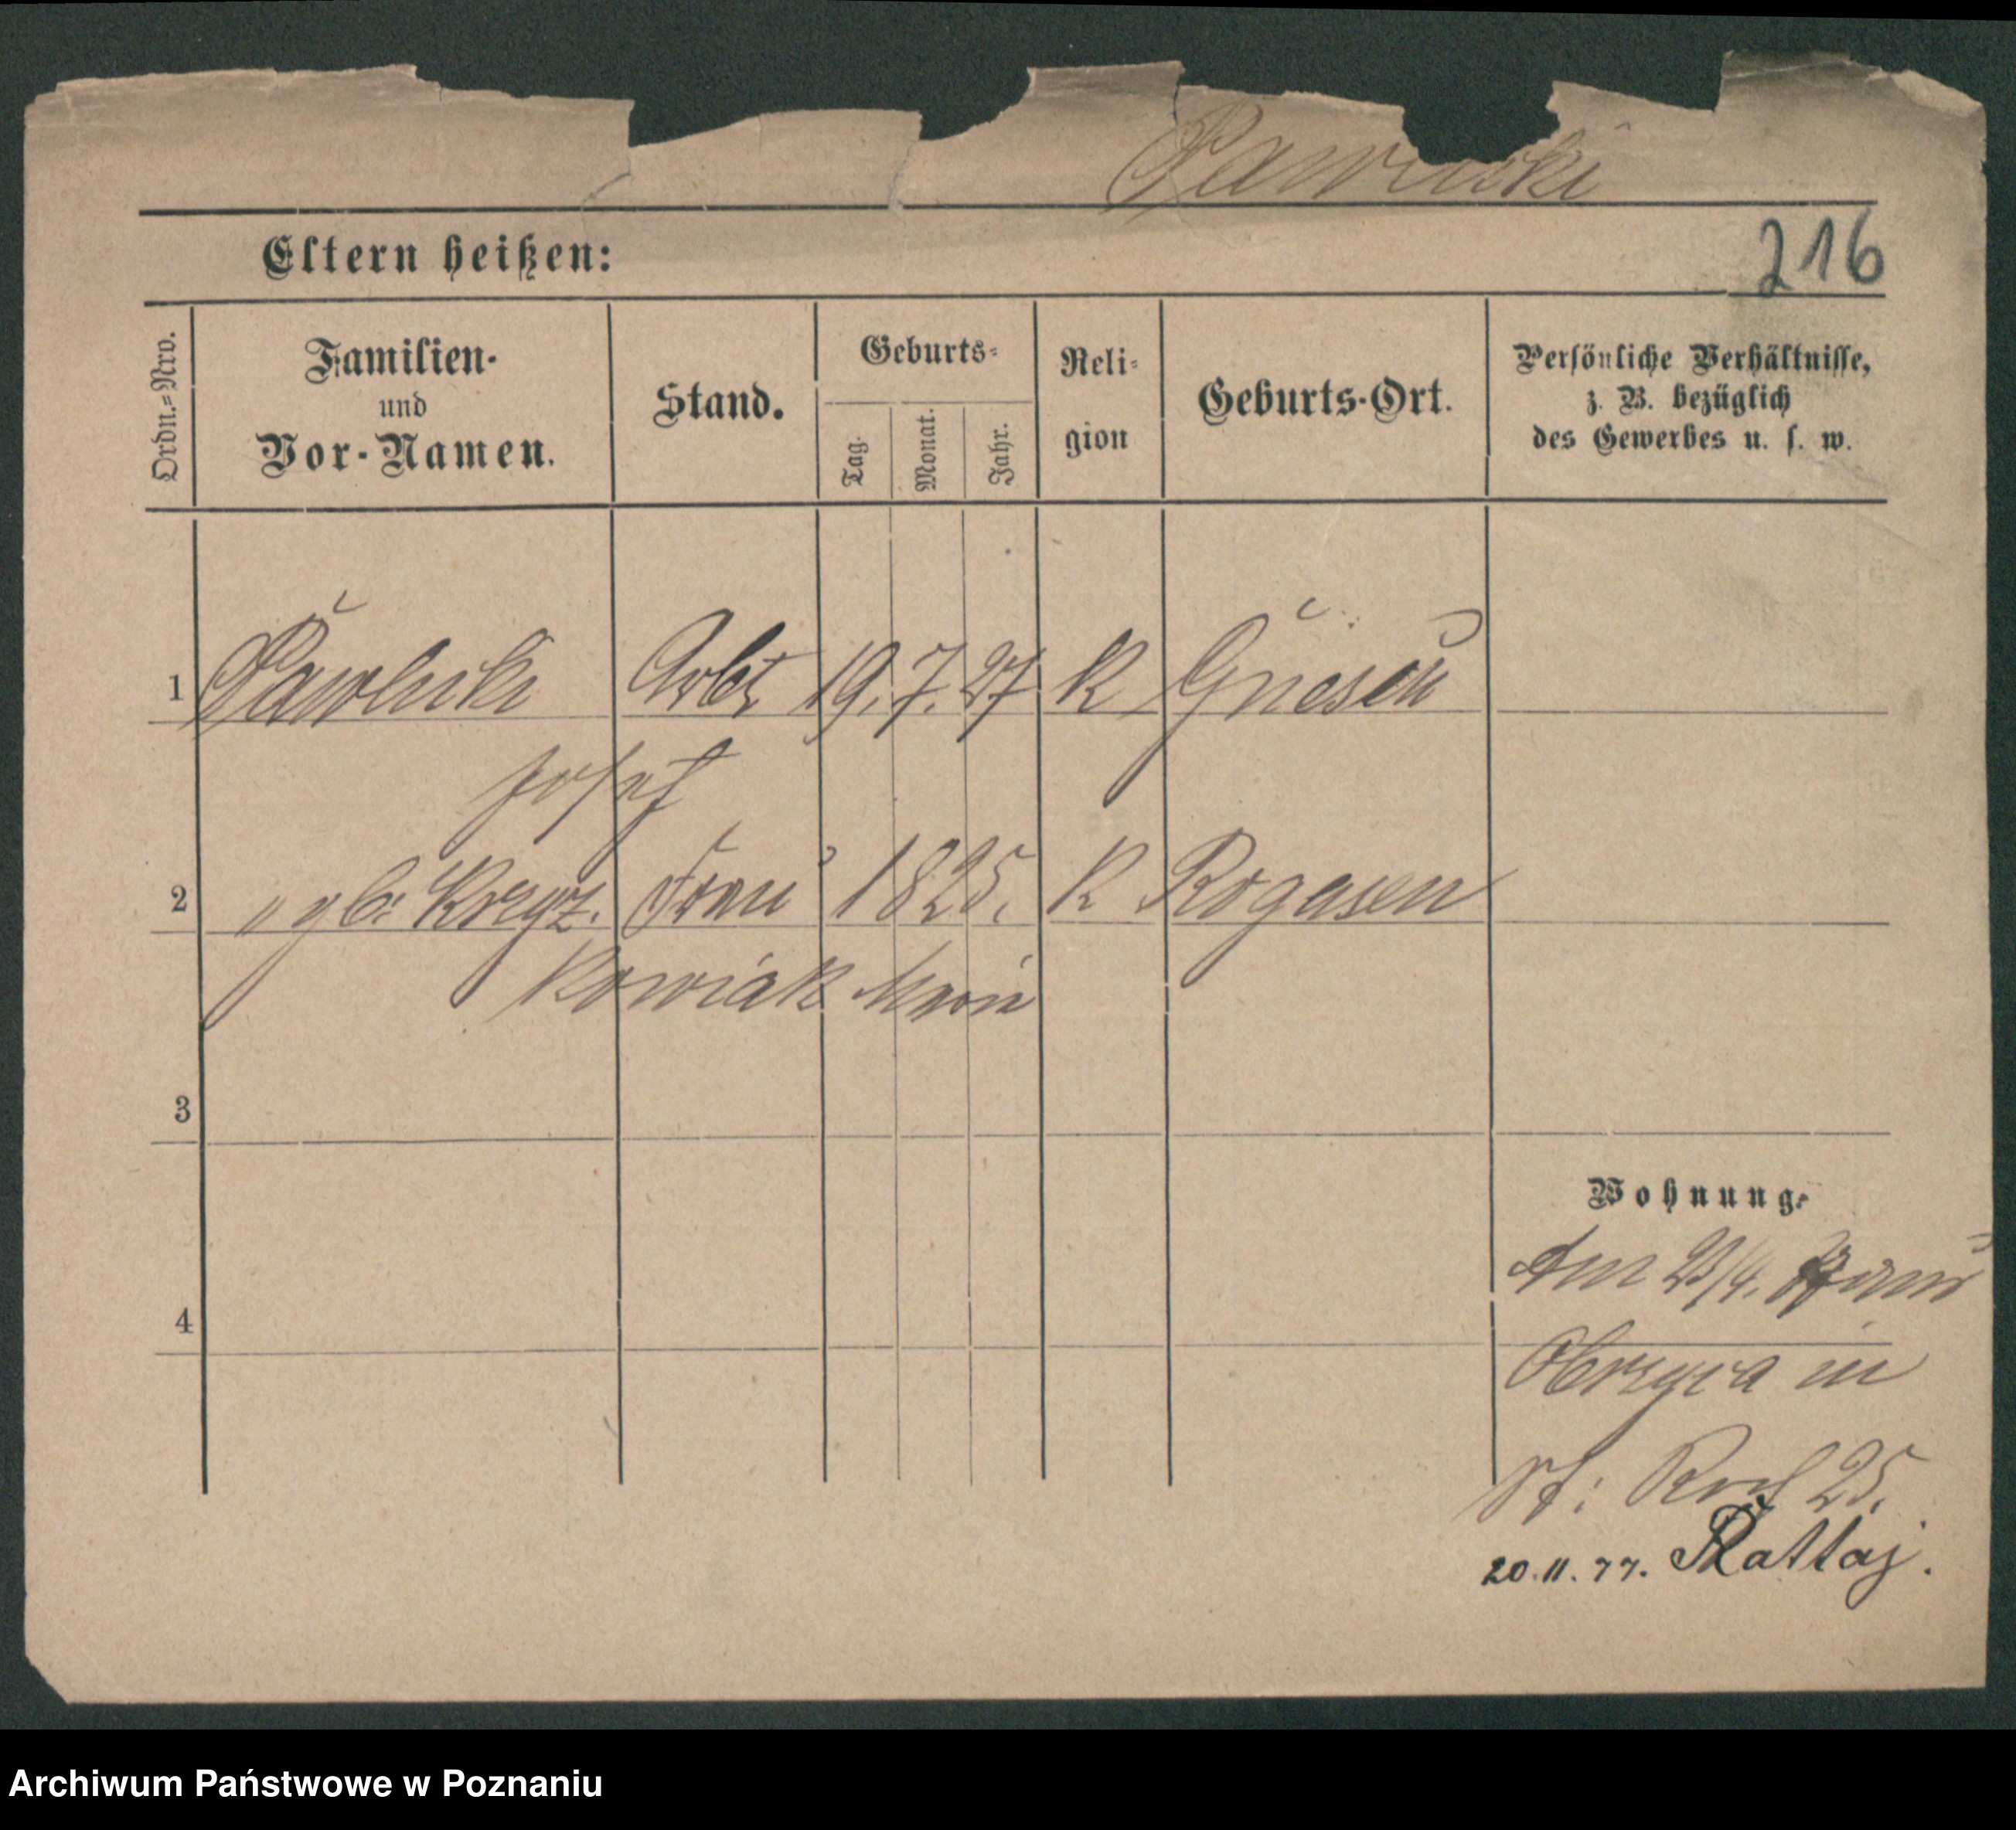 Eltern heißen:
216
Ordn.=Nro.
Familien-
und
Vor-Namen.
Stand.
Geburts=
Tag.
Monat.
Jahr.
Reli=
gion
Geburts-Ort.
Persönliche Verhältnisse,
z. B. bezüglich
des Gewerbes u. s. w.
1 Pawlicki Arbt 19. 7. 27 K Gnesen
Josef
2 " gb: Krzyz. Frau 1825. K Rogasen
kowiak Marie
3
Wohnung.
Am
4
in
St: Roch 25.
20.11.77. Rattaj.
Archiwum Państwowe w Poznaniu